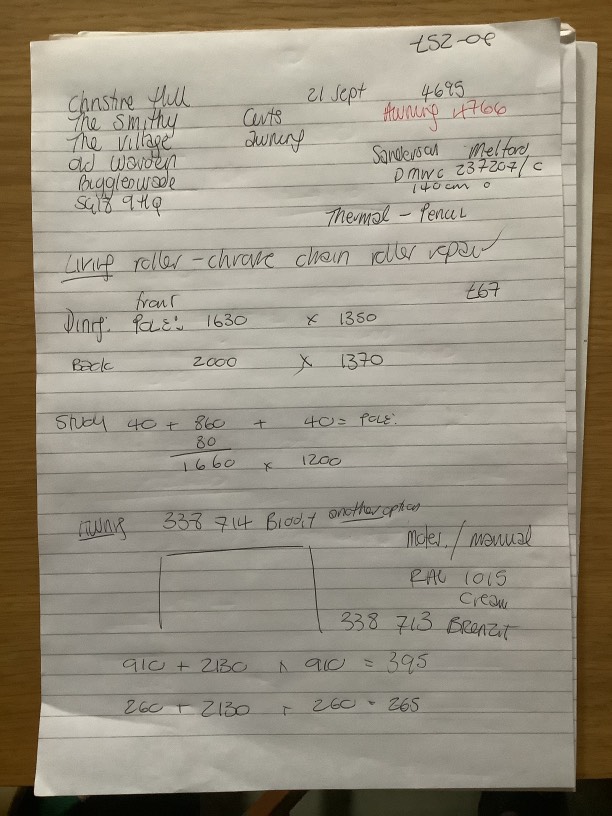 £52-08
Christine Hull 21 Sept 4695
The Smithy Curts Awning 4766
The Village awning
Old Warden Sanderson Melford
Biggleswade DMWC 237207/C
SG18 9HQ 140cm
Thermal - Pencil
Living roller - chrome chain roller repair
front £67
Dining: Pole: 1630 x 1350
Back 2000 x 1370
Study 40 + 860 + 40 = Pole:
80
1660 x 1200
Awning 338 714 another option
Motor / manual
RAL 1015
Cream
338 713
910 + 2130 910 = 395
260 + 2130 + 260 = 265